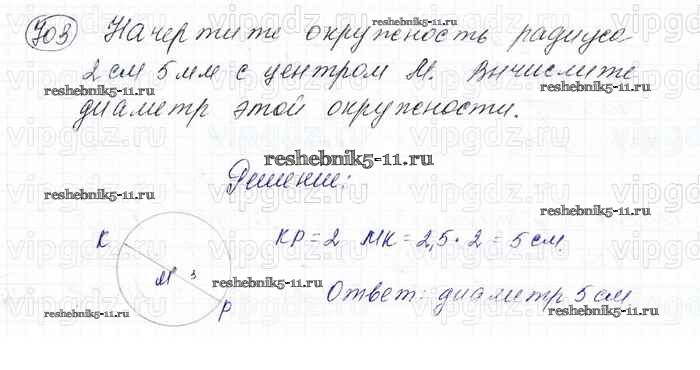 703 Начертите окружность радиуса
2 см 5 мм с центром М. Вычислите
диаметр этой окружности.
Решение:
K
M
P
KP = 2 MK = 2,5 · 2 = 5 см.
Ответ: диаметр 5 см
reshebnik5-11.ru
reshebnik5-11.ru
reshebnik5-11.ru
reshebnik5-11.ru
reshebnik5-11.ru
reshebnik5-11.ru
reshebnik5-11.ru
reshebnik5-11.ru
reshebnik5-11.ru
vipgdz.ru